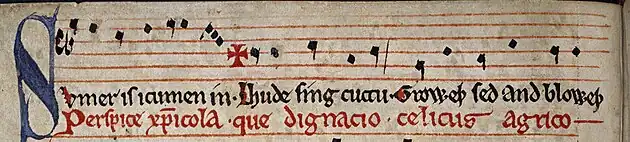 Sumer is icumen in · Lhude sing cuccu · Groweþ sed and bloweþ
Perspice xp̅icola · que dignacio · celicus agrico